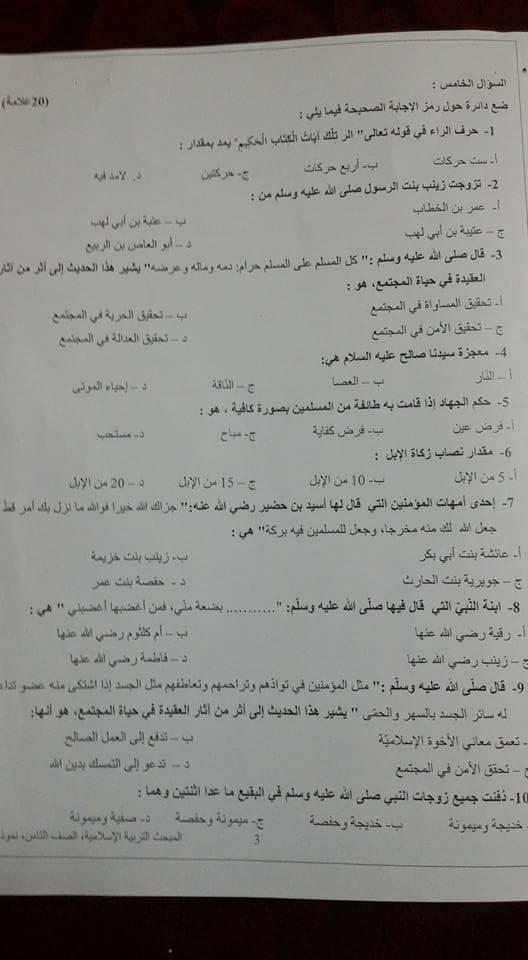 السؤال الخامس :
(20علامة)
ضع دائرة حول رمز الإجابة الصحيحة فيما يلي :
1- حرف الراء في قوله تعالى" الر تلْكَ آيَاتُ الْكِتَابِ الْحَكِيمِ" يمد بمقدار :
أ- ست حركات ب- أربع حركات ج- حركتين د. لامد فيه
2- تزوجت زينب بنت الرسول صلى الله عليه وسلم من :
أ- عمر بن الخطاب ب – عتبة بن أبي لهب
ج – عتيبة بن أبي لهب د – أبو العاص بن الربيع
3- قال صلى الله عليه وسلم :" كل المسلم على المسلم حرام: دمه وماله وعرضه" يشير هذا الحديث إلى أثر من آثار
العقيدة في حياة المجتمع، هو :
أ- تحقيق المساواة في المجتمع ب – تحقيق الحرية في المجتمع
ج – تحقيق الأمن في المجتمع د – تحقيق العدالة في المجتمع
4- معجزة سيدنا صالح عليه السلام هي:
أ – النّار ب – العصا ج – النّاقة د – إحياء الموتى
5- حكم الجهاد إذا قامت به طائفة من المسلمين بصورة كافية ، هو :
أ- فرض عين ب- فرض كفاية ج- مباح د- مستحب
6- مقدار نصاب زكاة الإبل :
أ- 5 من الإبل ب- 10 من الإبل ج – 15 من الإبل د – 20 من الإبل
7- إحدى أمهات المؤمنين التي قال لها أسيد بن حضير رضي الله عنه:" جزاك الله خيرا فوالله ما نزل بك أمر قط
جعل الله لك منه مخرجا، وجعل للمسلمين فيه بركة" هي :
أ- عائشة بنت أبي بكر ب- زينب بنت خزيمة
ج – جويرية بنت الحارث د - حفصة بنت عمر
8- ابنة النّبيّ التي قال فيها صلّى الله عليه وسلّم: ".......... بضعة منّي، فمن أغضبها أغضبني " هي :
أ- رقية رضي الله عنها ب – أم كلثوم رضي الله عنها
ج – زينب رضي الله عنها د – فاطمة رضي الله عنها
9- قال صلّى الله عليه وسلّم :" مثل المؤمنين في توادّهم وتراحمهم وتعاطفهم مثل الجسد إذا اشتكى منه عضو
له سائر الجسد بالسهر والحمّى " يشير هذا الحديث إلى أثر من آثار العقيدة في حياة المجتمع، هو أنها:
- تعمق معاني الأخوة الإسلاميّة ب – تدفع إلى العمل الصالح
ج – تحقق الأمن في المجتمع د – تدعو إلى التمسك بدين الله
10- دُفنت جميع زوجات النبي صلى الله عليه وسلم في البقيع ما عدا اثنتين وهما :
- خديجة وميمونة ب- خديجة وحفصة ج- ميمونة وحفصة د- صفية وميمونة
3 المبحث التربية الإسلامية، الصف الثامن،